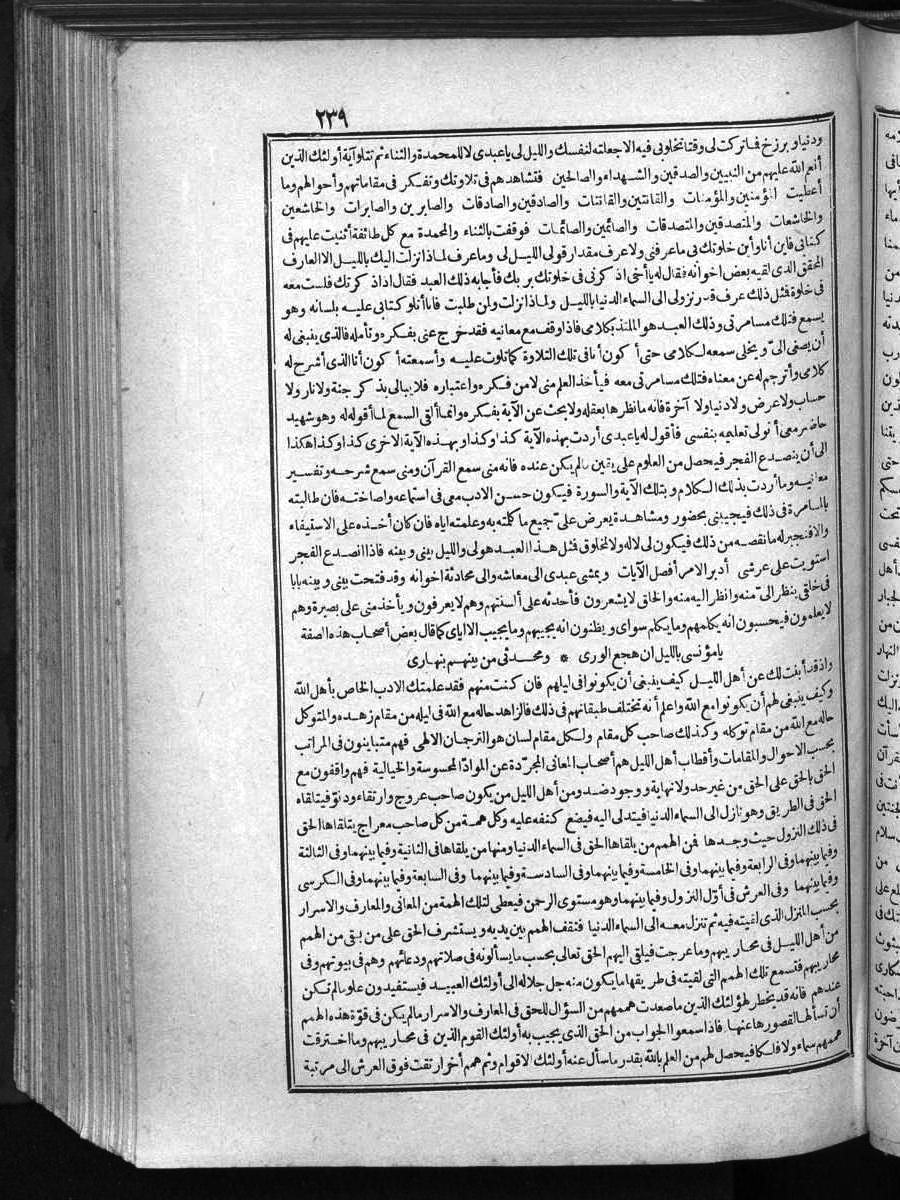 ٢٣٩
ودنيا وبرزخ فما تركت لى وقتا تخلو بى فيه الا جعلته لنفسك والليل لى يا عبدى لا للمحمدة والثناء ثم تتلو آية أولئك الذين
أنعم الله عليهم من النبيين والصديقين والشهداء والصالحين فتشاهدهم فى تلاوتك وتفكر فى مقاماتهم وأحوالهم وما
أعطيت المؤمنين والمؤمنات والقانتين والقانتات والصادقين والصادقات والصابرين والصابرات والخاشعين
والخاشعات والمتصدقين والمتصدقات والصائمين والصائمات فوقفت بالثناء والمحمدة مع كل طائفة أثنيت عليهم فى
كتابى فأين أنا وأين خلوتك بى ما عرفنى ولا عرف مقدار قولى الليل لى وما عرف لماذا نزلت اليك بالليل الا العارف
المحقق الذى لقيه بعض اخوانه فقال له يا أخى اذكرنى فى خلوتك بربك فأجابه ذلك العبد فقال اذا ذكرتك فلست معه
فى خلوة فمثل ذلك عرف قدر نزولى الى السماء الدنيا بالليل ولماذا نزلت ولمن طلبت فأنا أتلو كتابى عليه بلسانه وهو
يسمع فتلك مسامرتى وذلك العبد هو الملتذ بكلامى فاذا وقف مع معانيه فقد خرج عنى بفكره وتأمله فالذى ينبغى له
أن يصغى الىّ ويخلى سمعه لكلامى حتى أكون أنا فى تلك التلاوة كما تلوت عليه وأسمعته أكون أنا الذى أشرح له
كلامى وأترجم له عن معناه فتلك مسامرتى معه فيأخذ العلم منى لا من فكره واعتباره فلا يبالى بذكر جنة ولا نار ولا
حساب ولا عرض ولا دنيا ولا آخرة فانه ما نظرها بعقله ولا بحث عن الآية بفكره وانما ألقى السمع لما أقوله له وهو شهيد
حاضر معى أتولى تعليمه بنفسى فأقول له يا عبدى أردت بهذه الآية كذا وكذا وبهذه الآية الاخرى كذا وكذا هكذا
الى أن ينصدع الفجر فيحصل من العلوم على يقين مالم يكن عنده فانه منى سمع القرآن ومنى سمع شرحه وتفسير
معانيه وما أردت بذلك الكلام وبتلك الآية والسورة فيكون حسن الادب معى فى استماعه واصاخته فان طالبته
بالمسامرة فى ذلك فيجيبنى بحضور ومشاهدة يعرض علىّ جميع ما كلمته به وعلمته اياه فان كان أخذه على الاستيفاء
والا فنجبر له ما نقصه من ذلك فيكون لى لا له ولا لمخلوق فمثل هذا العبد هو لى والليل بينى وبينه فاذا انصدع الفجر
استويت على عرشى أدبر الامر أفصل الآيات ويمشى عبدى الى معاشه والى محادثة اخوانه وقد فتحت بينى وبينه بابا
فى خلقى ينظر الىّ منه وأنظر اليه منه والخلق لا يشعرون فأحدثه على ألسنتهم وهم لا يعرفون ويأخذ منى على بصيرة وهم
لا يعلمون فيحسبون انه يكلمهم وما يكلم سواى ويظنون انه يجيبهم وما يجيب الا اياى كما قال بعض أصحاب هذه الصفة
يا مؤنسى بالليل ان هجع الورى * ومحدثى من بينهم بنهارى
واذ قد أبنت لك عن أهل الليل كيف ينبغى أن يكونوا فى ليلهم فان كنت منهم فقد علمتك الادب الخاص بأهل الله
وكيف ينبغى لهم أن يكونوا مع الله واعلم أنه تختلف طبقاتهم فى ذلك فالزاهد حاله مع الله فى ليله من مقام زهده والمتوكل
حاله مع الله من مقام توكله وكذلك صاحب كل مقام ولكل مقام لسان هو الترجمان الالهى فهم متباينون فى المراتب
بحسب الاحوال والمقامات وأقطاب أهل الليل هم أصحاب المعانى المجردة عن الموادّ المحسوسة والخيالية فهم واقفون مع
الحق بالحق على الحق من غير حد ولا نهاية ووجود ضد ومن أهل الليل من يكون صاحب عروج وارتقاء ودنوّ فيتلقاه
الحق فى الطريق وهو نازل الى السماء الدنيا فيتدلى اليه فيضع كنفه عليه وكل همة من كل صاحب معراج يتلقاها الحق
فى ذلك النزول حيث وجدها فمن الهمم من يلقاها الحق فى السماء الدنيا ومنها من يلقاها فى الثانية وفيما بينهما وفى الثالثة
وفيما بينهما وفى الرابعة وفيما بينهما وفى الخامسة وفيما بينهما وفى السادسة وفيما بينهما وفى السابعة وفيما بينهما وفى الكرسى
وفيما بينهما وفى العرش فى أوّل النزول وفيما بينهما وهو مستوى الرحمن فيعطى لتلك الهمة من المعانى والمعارف والاسرار
بحسب المنزل الذى لقيته فيه ثم تنزل معه الى السماء الدنيا فتقف الهمم بين يديه ويستشرف الحق على من بقى من الهمم
من أهل الليل فى محاريبهم وما عرجت فيلقى اليهم الحق تعالى بحسب ما يسألونه فى صلاتهم ودعائهم وهم فى بيوتهم وفى
محاريبهم فتسمع تلك الهمم التى لقيته فى طريقها ما يكون منه جل جلاله الى أولئك العبيد فيستفيدون علوما لم تكن
عندهم فانه قد يخطر لهؤلئك الذين ما صعدت هممهم من السؤال للحق فى المعارف والاسرار مالم يكن فى قوّة هذه الهمم
أن تسألها لقصورها عنها فاذا سمعوا الجواب من الحق الذى يجيب به أولئك القوم الذين فى محاريبهم وما اخترقت
هممهم سماء ولا فلكا فيحصل لهم من العلم بالله بقدر ما سأل عنه أولئك الاقوام وثم همم أخر ارتقت فوق العرش الى مرتبة